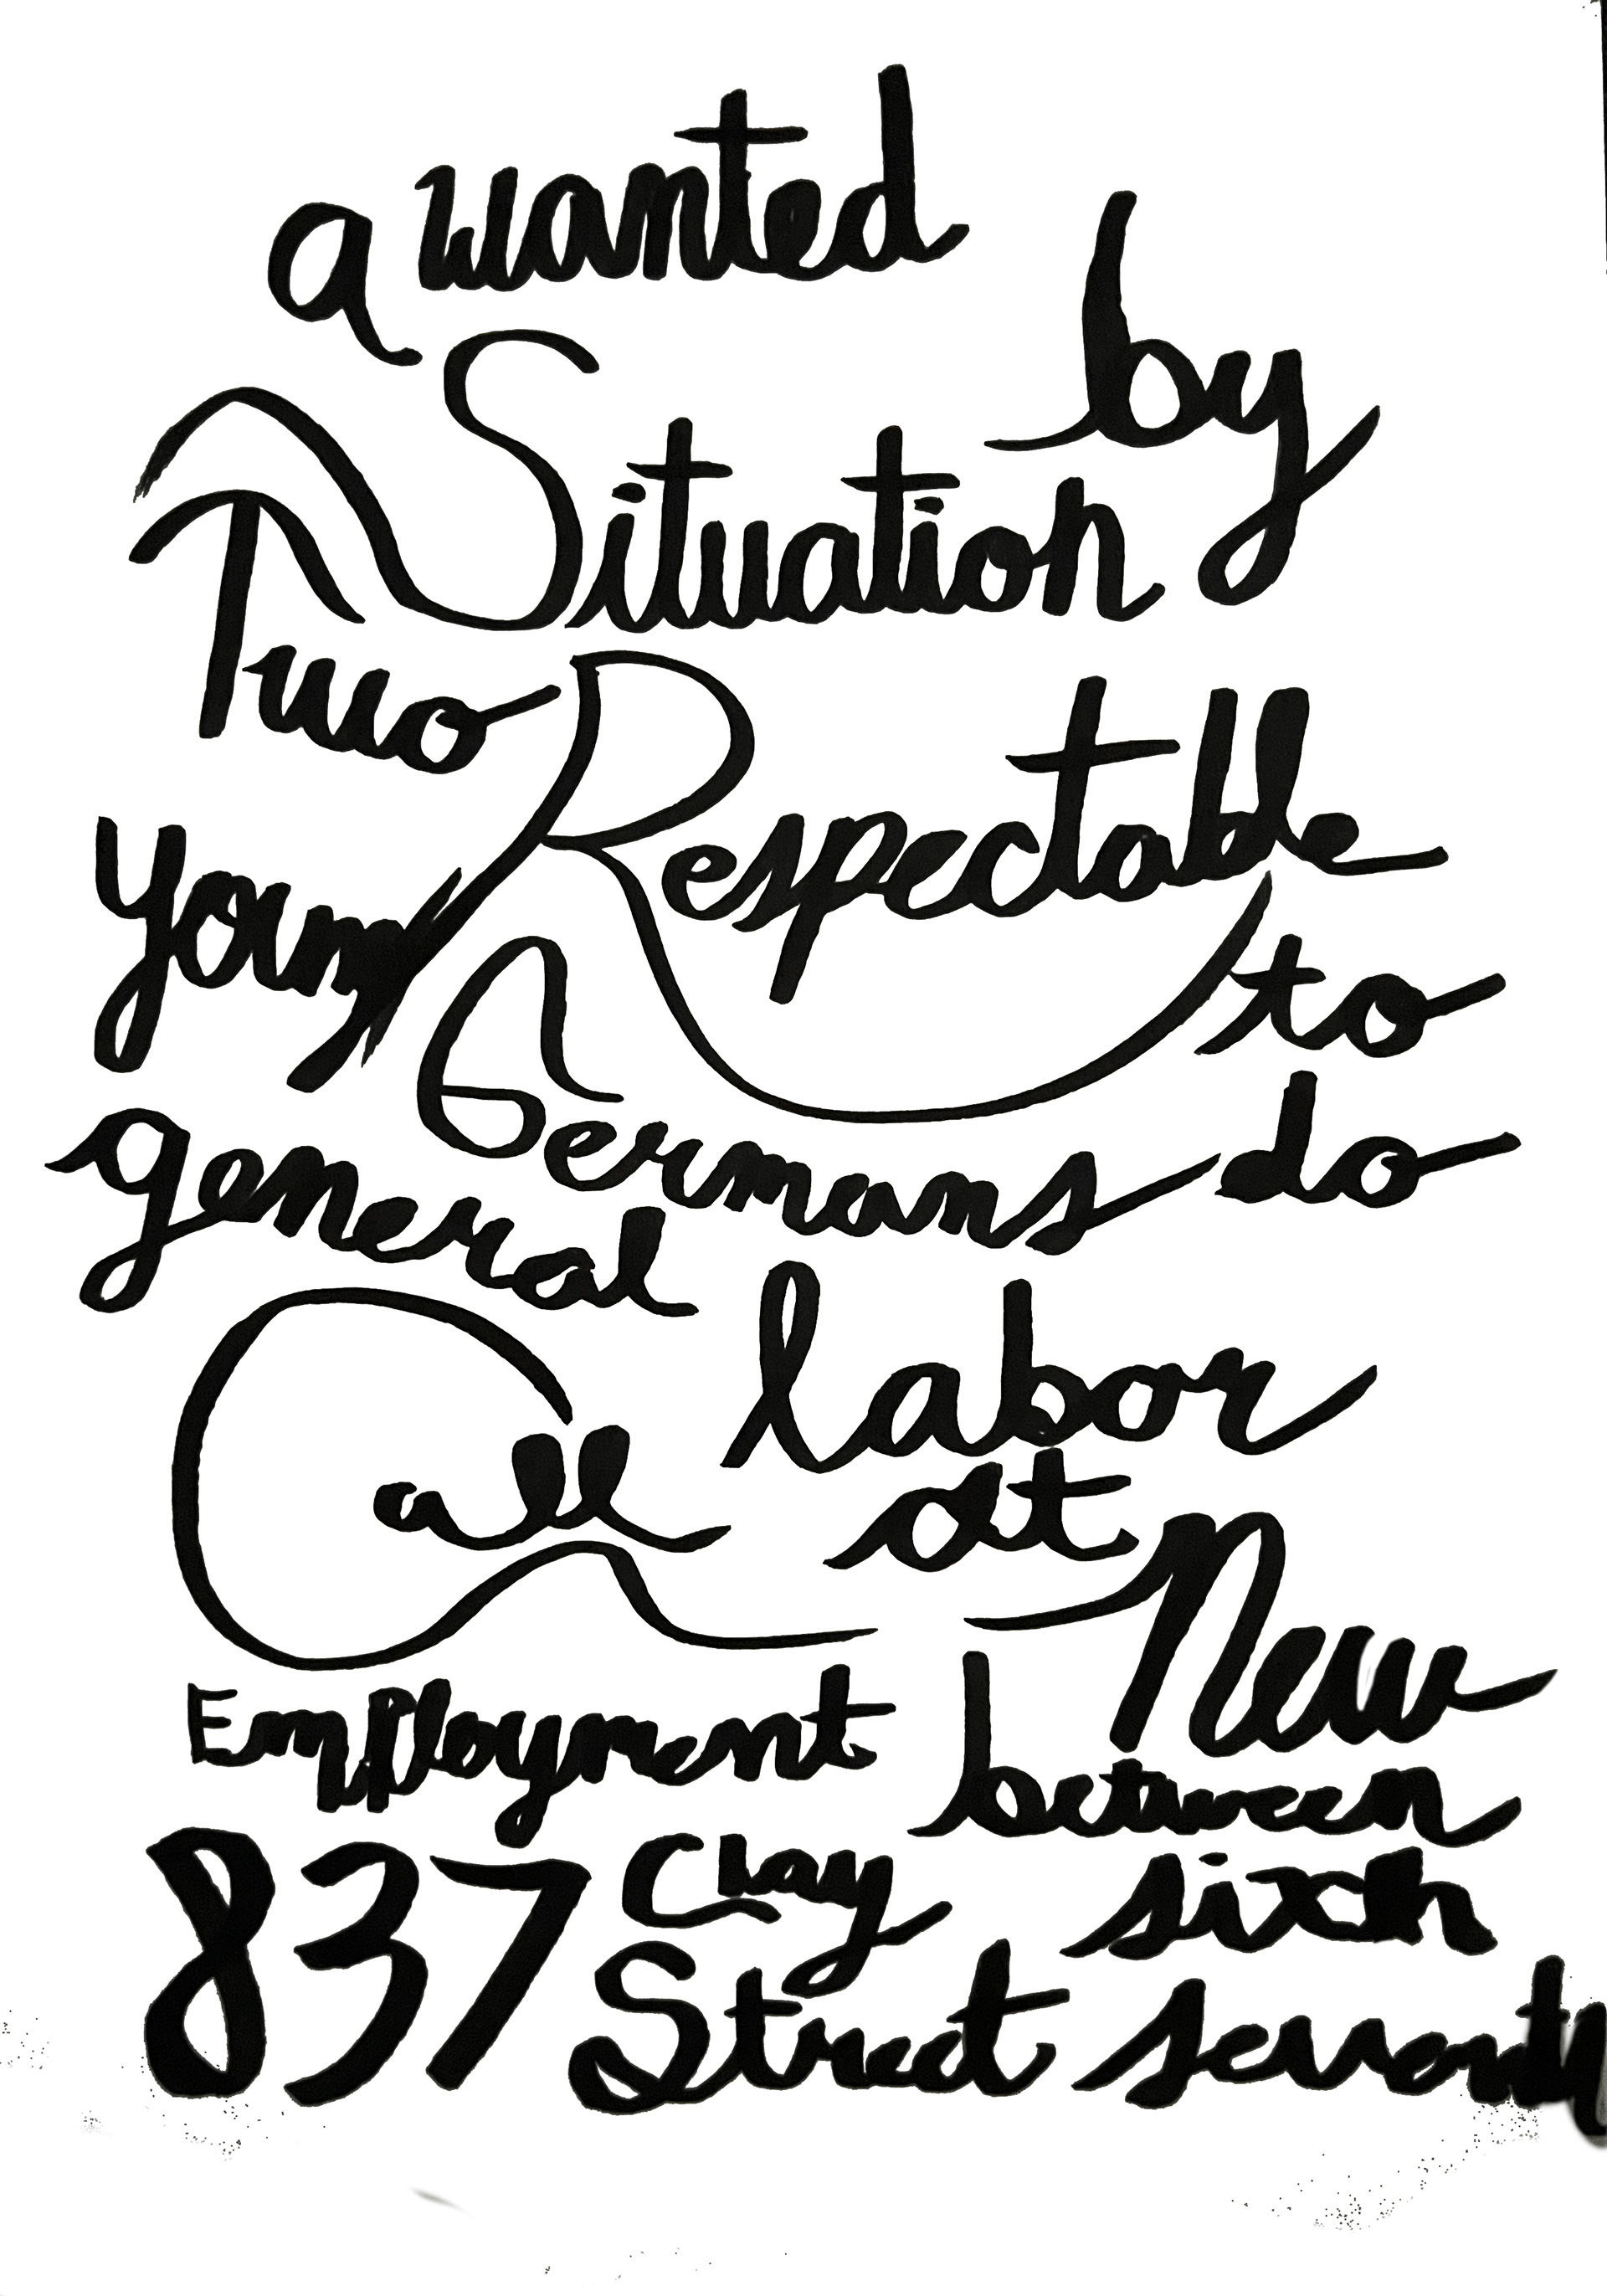 a wanted
by
Situation
Two
Respectable
young
to
Germans do
general
labor
Call
at
New
Employment
between
837 Clay
sixth
Street seventh